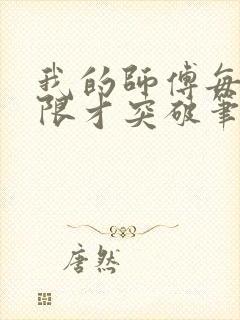 我的師傅每
限才突破筆
唐然